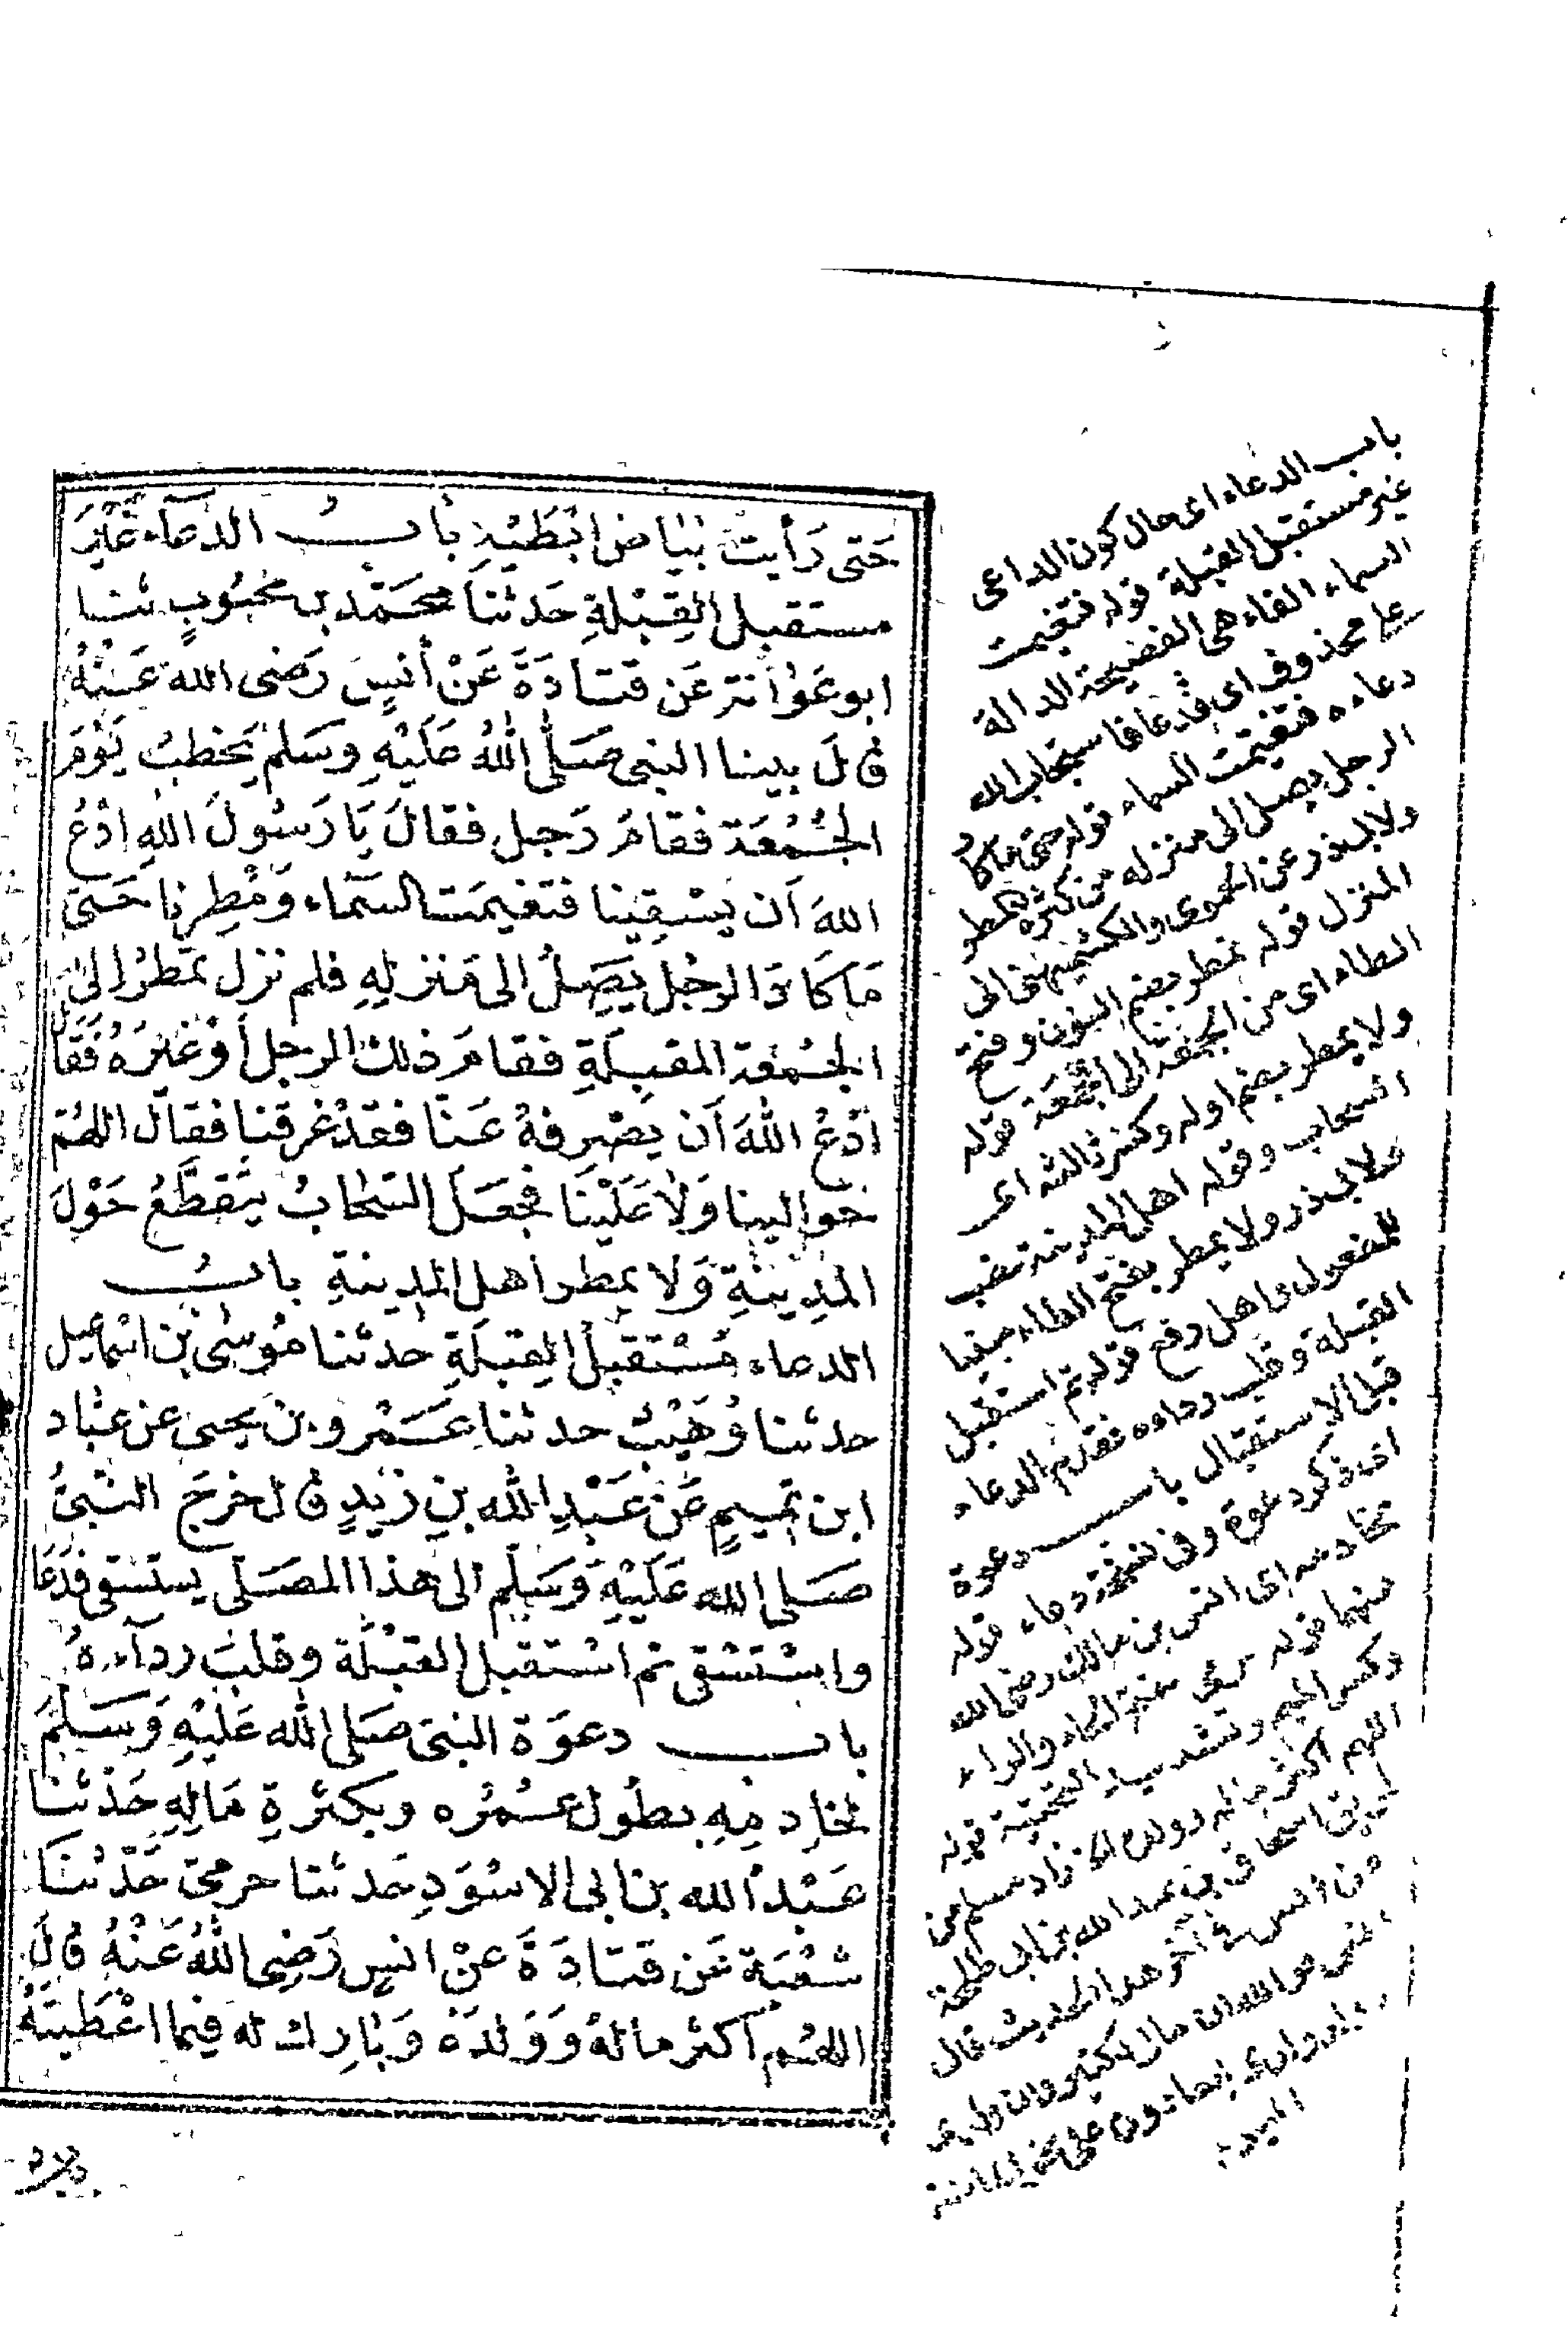 حَتى رَأيتُ بَيَاضَ ابْطَيْهِ بابُ الدعآء غَيْرَ
مستقبل القِبْلةِ حَدثنَا محمّد بن محْبُوبٍ ثنا
ابو عَوُانة عَن قتادَةَ عَنْ أنسٍ رَضى الله عَنْهُ
قالَ بينا النبى صَلَّى اللهُ عَلَيْهِ وسَلم يَخطبُ يَوْمَ
الجُمُعَة فقامَ رَجل فقالَ يَا رَسُولَ اللهِ ادْعُ
اللهَ اَن يسْقِينا فتغيمَت السَّماء وَمُطِرنا حَتى
مَا كَادَ الرجُل يَصِلُ الى مَنزلِهِ فلم نزل نمْطرُ الى
الجُمُعَة المقبِلَةِ فقامَ ذلك الرجل أوْ غيْرَهُ فَقَالَ
اُدْعُ اللهَ اَن يصْرِفهُ عَنّا فقدْ غرقنا فقالَ اللهُمّ
حَوالينا وَلاَ عَلَيْنَا فجعَلَ السَّحَابُ يتَقطَّعُ حَوْلَ
المَدِينَةِ وَلا يمطر أهل المَدِينةِ بابُ
الدعاء مُسْتقبِلَ القِبلَةِ حدثنا مُوسٰى بن اسْماعيل
حدثنا وُهَيْبٌ حدثنا عَمْرو بن يحيى عن عبّاد
ابن تميمٍ عَن عَبْدِ الله بنِ زَيدٍ قال خرجَ النبىُّ
صَلى الله عَليْهِ وَسَلّم الى هٰذا المصَلى يستسْقى فدَعَا
واسْتسْقى ثم اسْتقبل القبْلَة وقلبَ ردآءهُ
باب دعوَة النبى صَلى الله عَلَيْهِ وَسَلَّمَ
لخادِمِهِ بطُول عُمُره وبكثرةِ مَالِهِ حَدثنا
عَبْدُ الله بن ابى الاسْوَدِ حَدثنا حرمىّ حَدّثنَا
شعْبَة عَن قتادَةَ عَنْ انسٍ رَضِى اللهُ عَنْهُ قالَ
اللهُم اَكثر مالهُ وَوَلدَهُ وَبَارِك له فِيما اعْطَيتَهُ
باب الدعاء اى حال كون الداعى
غير مستقبل القبلة قوله فتغيمت
السماء الفاء هى الفصيحة الدالة
على محذوف اى فدعا فاستجاب الله
دعاءه فتغيمت السماء قوله حتى ما كاد
الرجل يصل الى منزله من كثرة المطر
ولابى ذر عن الحموى والكشميهنى الى
المنزل قوله نمطر بضم النون وفتح
الطاء اى من الجمعة الى الجمعة قوله
ولا يمطر بضم اوله وكسر ثالثه اى
السحاب وقوله اهل المدينة نصب
ولابى ذر ولا يمطر بفتح الطاء مبنيا
للمفعول واهل رفع قوله ثم استقبل
القبلة وقلب رداءه فقدم الدعاء
قبل الاستقبال باب دعوة
اى ذكر دعوة وفى نسخة دعاء قوله
لخادمه اى انس بن مالك رضى الله
عنهما قوله حرمى بفتح الحاء والراء
وكسر الميم وتشديد التحتية قوله
اللهم اكثر ماله وولده زاد مسلم من
طريق اسحاق بن عبد الله بن ابى طلحة
عن انس فى آخر هذا الحديث قال
انس فوالله ان مالى لكثير وان ولدى
وولد ولدى ليعادون على نحو المائة
اليوم